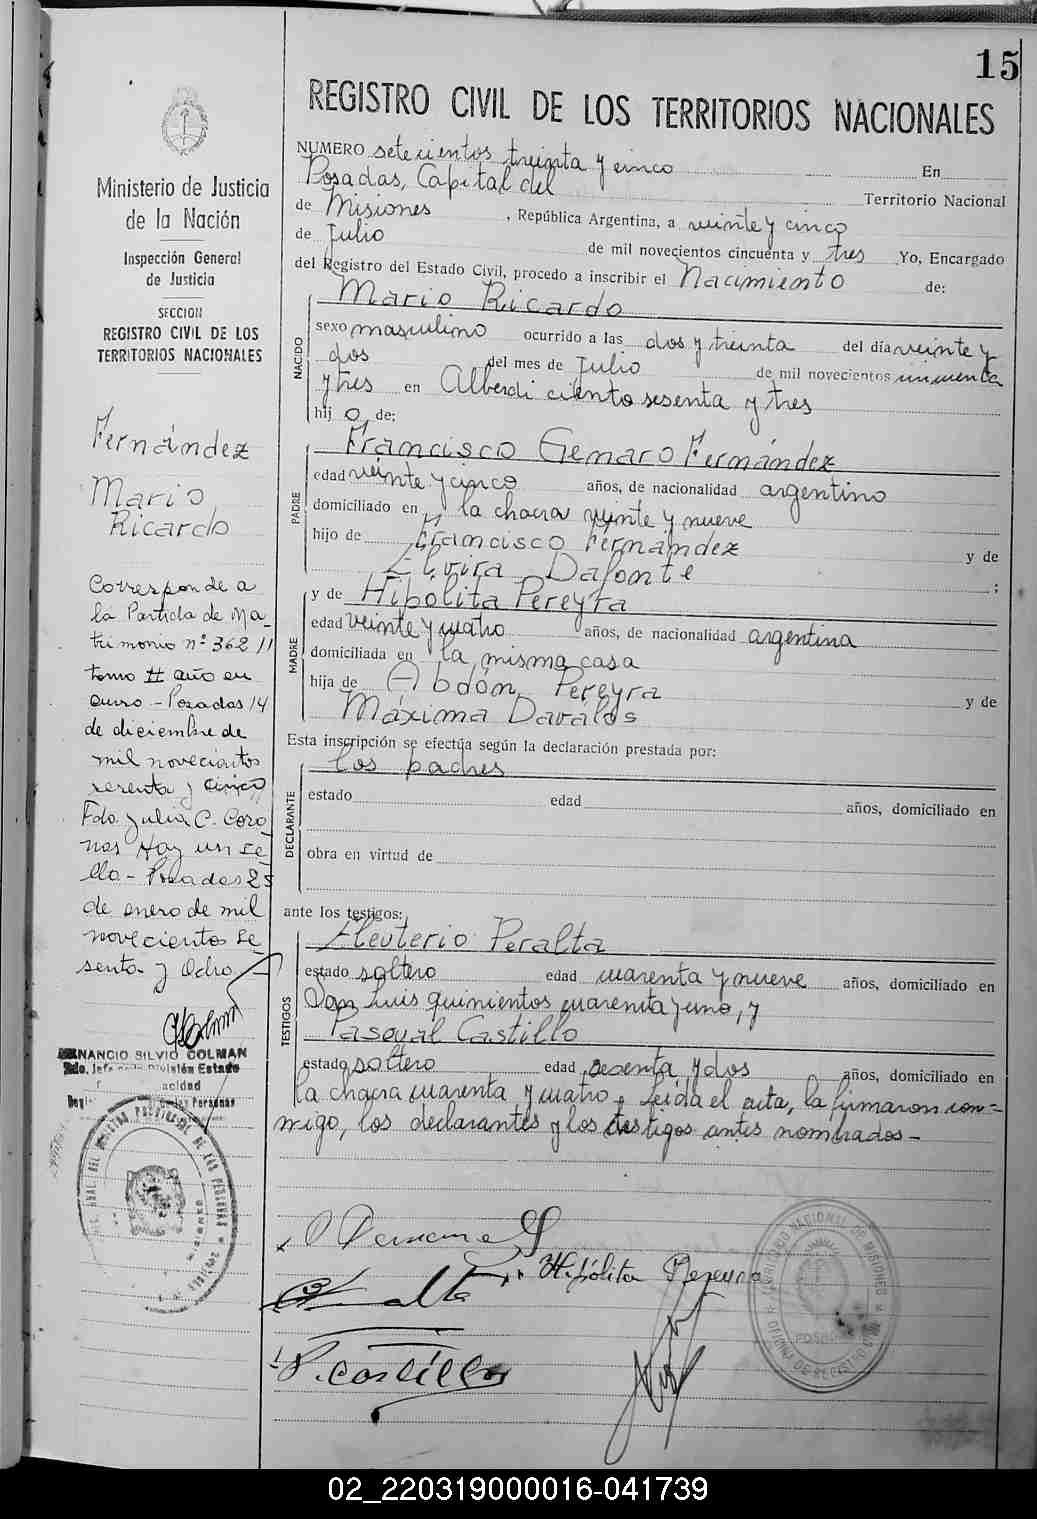 15
REGISTRO CIVIL DE LOS TERRITORIOS NACIONALES
Ministerio de Justicia
de la Nación
Inspección General
de Justicia
SECCION
REGISTRO CIVIL DE LOS
TERRITORIOS NACIONALES
Fernández
Mario
Ricardo
Corresponde a
la Partida de Ma-
trimonio nº 362 //
tomo II año en
curso - Posadas 14
de diciembre de
mil novecientos
y cinco
Fdo. Julia C. Coro-
nas Hay un se-
llo - Posadas 25
de enero de mil
novecientos se-
senta y Ocho
NANCIO SILVIO COLMAN
División Estado
acidad
Personas
NUMERO setecientos treinta y cinco En
Posadas, Capital del Territorio Nacional
de Misiones, República Argentina, a veinte y cinco
de Julio de mil novecientos cincuenta y tres Yo, Encargado
del Registro del Estado Civil, procedo a inscribir el Nacimiento de:
NACIDO
Mario Ricardo
sexo masculino ocurrido a las dos y treinta del día veinte y
dos del mes de Julio de mil novecientos cincuenta
y tres en Alberdi ciento sesenta y tres
hijo de:
PADRE
Francisco Genaro Fernández
edad veinte y cinco años, de nacionalidad argentino
domiciliado en la chacra veinte y nueve
hijo de Francisco Fernández y de
Elvira Dafonte ;
MADRE
y de Hipólita Pereyra
edad veinte y cuatro años, de nacionalidad argentina
domiciliada en la misma casa
hija de Abdón Pereyra y de
Máxima Davalos
Esta inscripción se efectúa según la declaración prestada por:
DECLARANTE
los padres
estado edad años, domiciliado en
obra en virtud de
ante los testigos:
TESTIGOS
Eleuterio Peralta
estado soltero edad cuarenta y nueve años, domiciliado en
San Luis quinientos cuarenta y uno, y
Pasqual Castillo
estado soltero edad sesenta y dos años, domiciliado en
la chacra cuarenta y cuatro. Leída el acta, la firmaron con-
migo, los declarantes y los testigos antes nombrados -
Hipólita Pereyra
P. Castillo
TERRITORIO NACIONAL DE MISIONES
POSADAS
OFICINA DE REGISTRO CIVIL
02_220319000016-041739